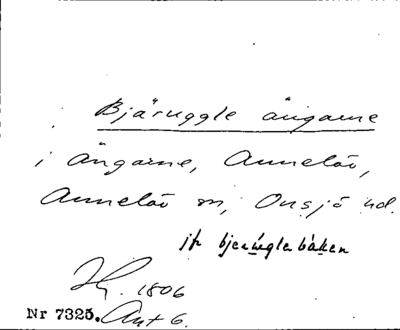 Bjäruggle ängarne
i Ängarne, Annelöv,
Annelöv sn, Onsjö hd.
jfr bjerúglebáken
1806
Nr 7325. Akt 6.